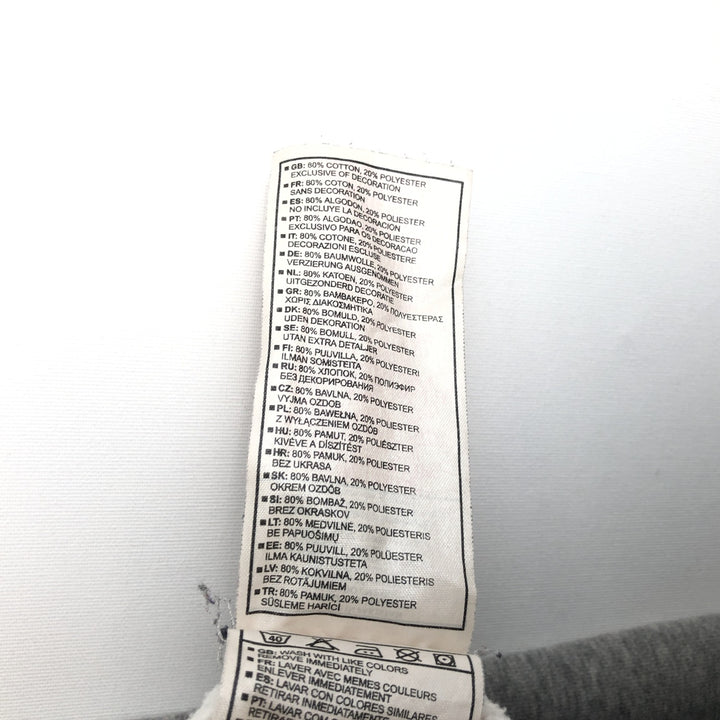 GB: 80% COTTON, 20% POLYESTER
EXCLUSIVE OF DECORATION
FR: 80% COTON, 20% POLYESTER
SANS DECORATION
ES: 80% ALGODON, 20% POLIESTER
NO INCLUYE LA DECORACION
PT: 80% ALGODAO, 20% POLIESTER
EXCLUSIVO PARA OS DECORACAO
IT: 80% COTONE, 20% POLIESTERE
DECORAZIONI ESCLUSE
DE: 80% BAUMWOLLE, 20% POLYESTER
VERZIERUNG AUSGENOMMEN
NL: 80% KATOEN, 20% POLYESTER
UITGEZONDERD DECORATIE
GR: 80% ΒΑΜΒΑΚΕΡΟ, 20% ΠΟΛΥΕΣΤΕΡΑΣ
ΧΩΡΙΣ ΔΙΑΚΟΣΜΗΤΙΚΑ
DK: 80% BOMULD, 20% POLYESTER
UDEN DEKORATION
SE: 80% BOMULL, 20% POLYESTER
UTAN EXTRA DETALJER
FI: 80% PUUVILLA, 20% POLYESTERI
ILMAN SOMISTEITA
RU: 80% ХЛОПОК, 20% ПОЛИЭФИР
БЕЗ ДЕКОРИРОВАНИЯ
CZ: 80% BAVLNA, 20% POLYESTER
VYJMA OZDOB
PL: 80% BAWEŁNA, 20% POLYESTER
Z WYŁĄCZENIEM OZDÓB
HU: 80% PAMUT, 20% POLIÉSZTER
KIVÉVE A DÍSZÍTÉST
HR: 80% PAMUK, 20% POLYESTER
BEZ UKRASA
SK: 80% BAVLNA, 20% POLYESTER
OKREM OZDÔB
SI: 80% BOMBAŽ, 20% POLYESTER
BREZ OKRASKOV
LT: 80% MEDVILNĖ, 20% POLIESTERIS
BE PAPUOŠIMŲ
EE: 80% PUUVILL, 20% POLÜESTER
ILMA KAUNISTUSTETA
LV: 80% KOKVILNA, 20% POLIESTERIS
BEZ ROTĀJUMIEM
TR: 80% PAMUK, 20% POLYESTER
SÜSLEME HARİCİ
40
GB: WASH WITH LIKE COLORS
REMOVE IMMEDIATELY
FR: LAVER AVEC MEMES COULEURS
ENLEVER IMMEDIATEMENT
ES: LAVAR CON COLORES SIMILARES
RETIRAR INMEDIATAMENTE
PT: LAVAR COM
RETIRAR